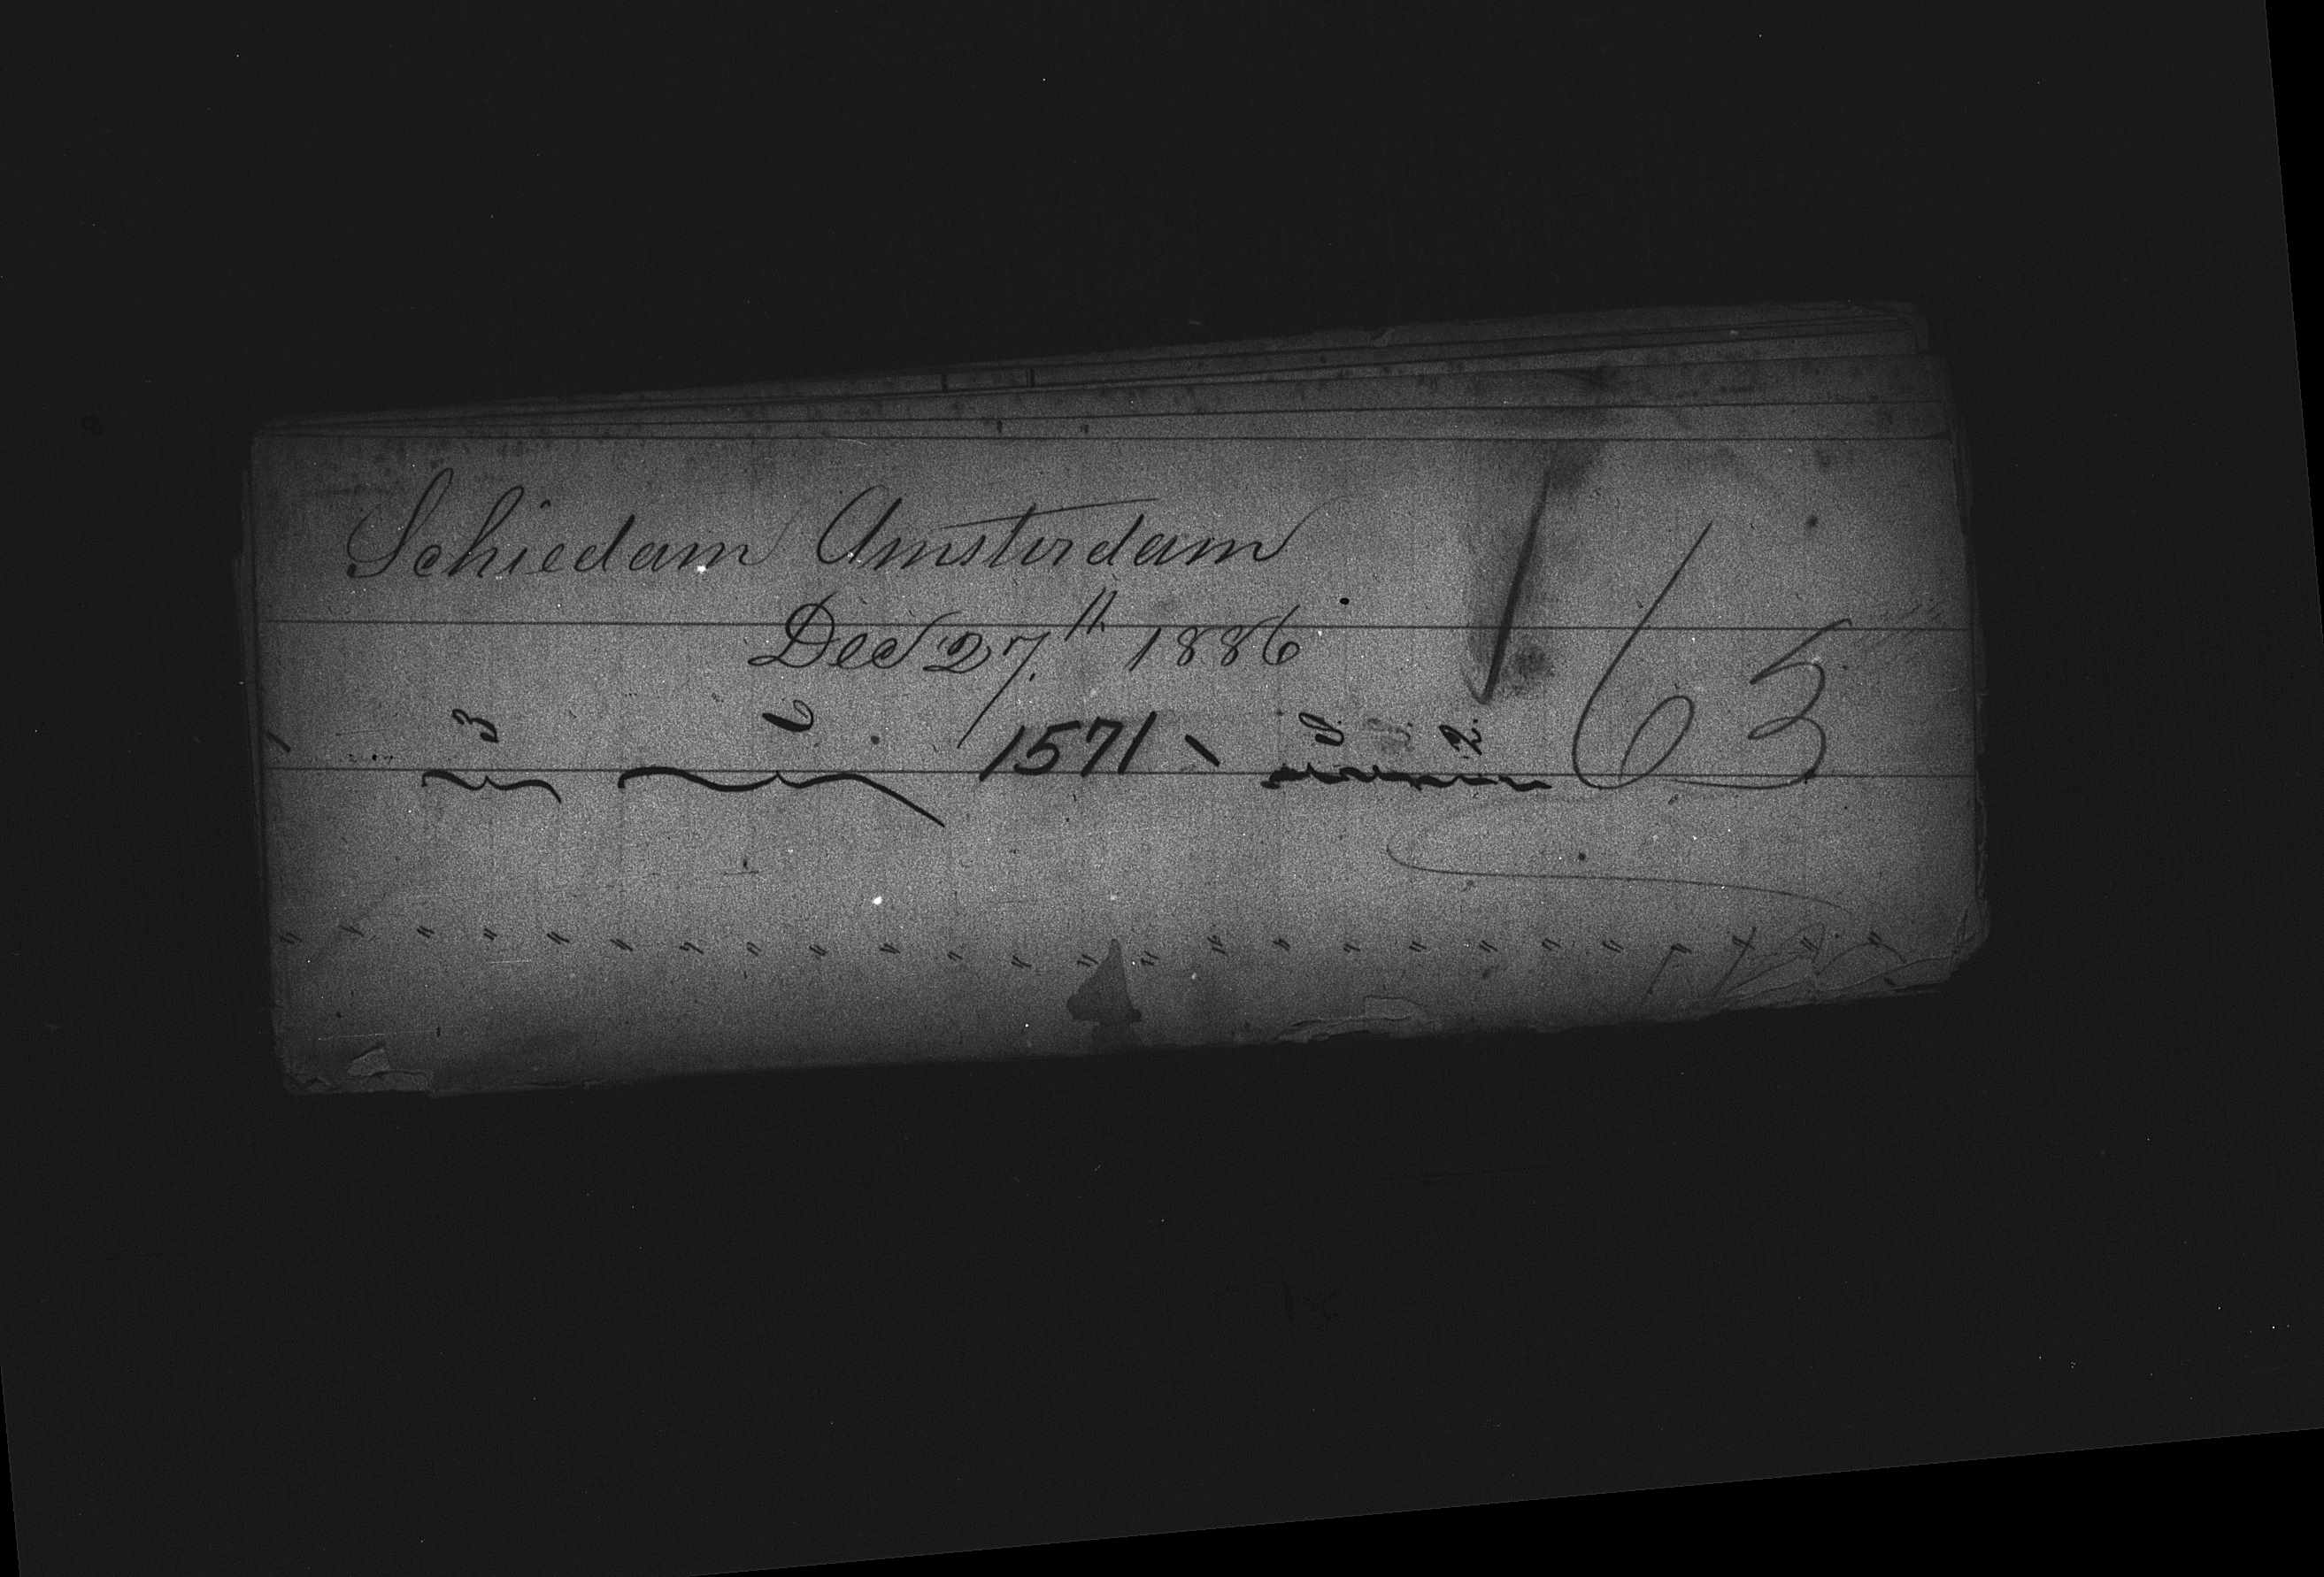 Schiedam Amsterdam
Dec 27th 1886
1571
63